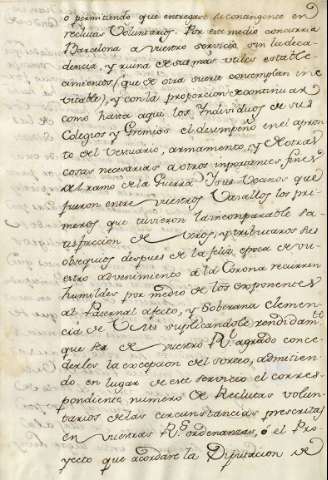 o permitiendo que entregase su contingente en
reclutas Voluntarios. Por este medio concurria
Barcelona a vuestro servicio, sin la deca-
dencia, y ruina de sus mas utiles estable-
cimientos (que de otra suerte contemplan ine-
vitable), y con la proporcion de continuar
como hasta aqui los Individuos de sus
Colegios y Gremios el desempeño en el apron-
to del Vestuario, armamento, y de otras
cosas necesarias a otros importantes fines
al ramo de la Guerra. Y sus Vecinos que
fueron entre vuestros Vasallos los pri-
meros que tuvieron la incomparable sa-
tisfaccion de veros, y tributaros sus
obsequios despues de la feliz epoca de vu-
estro advenimiento a la Corona recurren
humildes por medio de los exponentes
al Paternal afecto, y Soberana Clemen-
cia de V. M. suplicandole rendidamte.
que sea de vuestro Rl. agrado conce-
derles la excepcion del sorteo, admitien-
do en lugar de este servicio el corres-
pondiente numero de Reclutas volun-
tarios de las circunstancias prescritas
en vuestras Rs. ordenanzas, ó el Pro-
yecto que acordare la Diputacion de